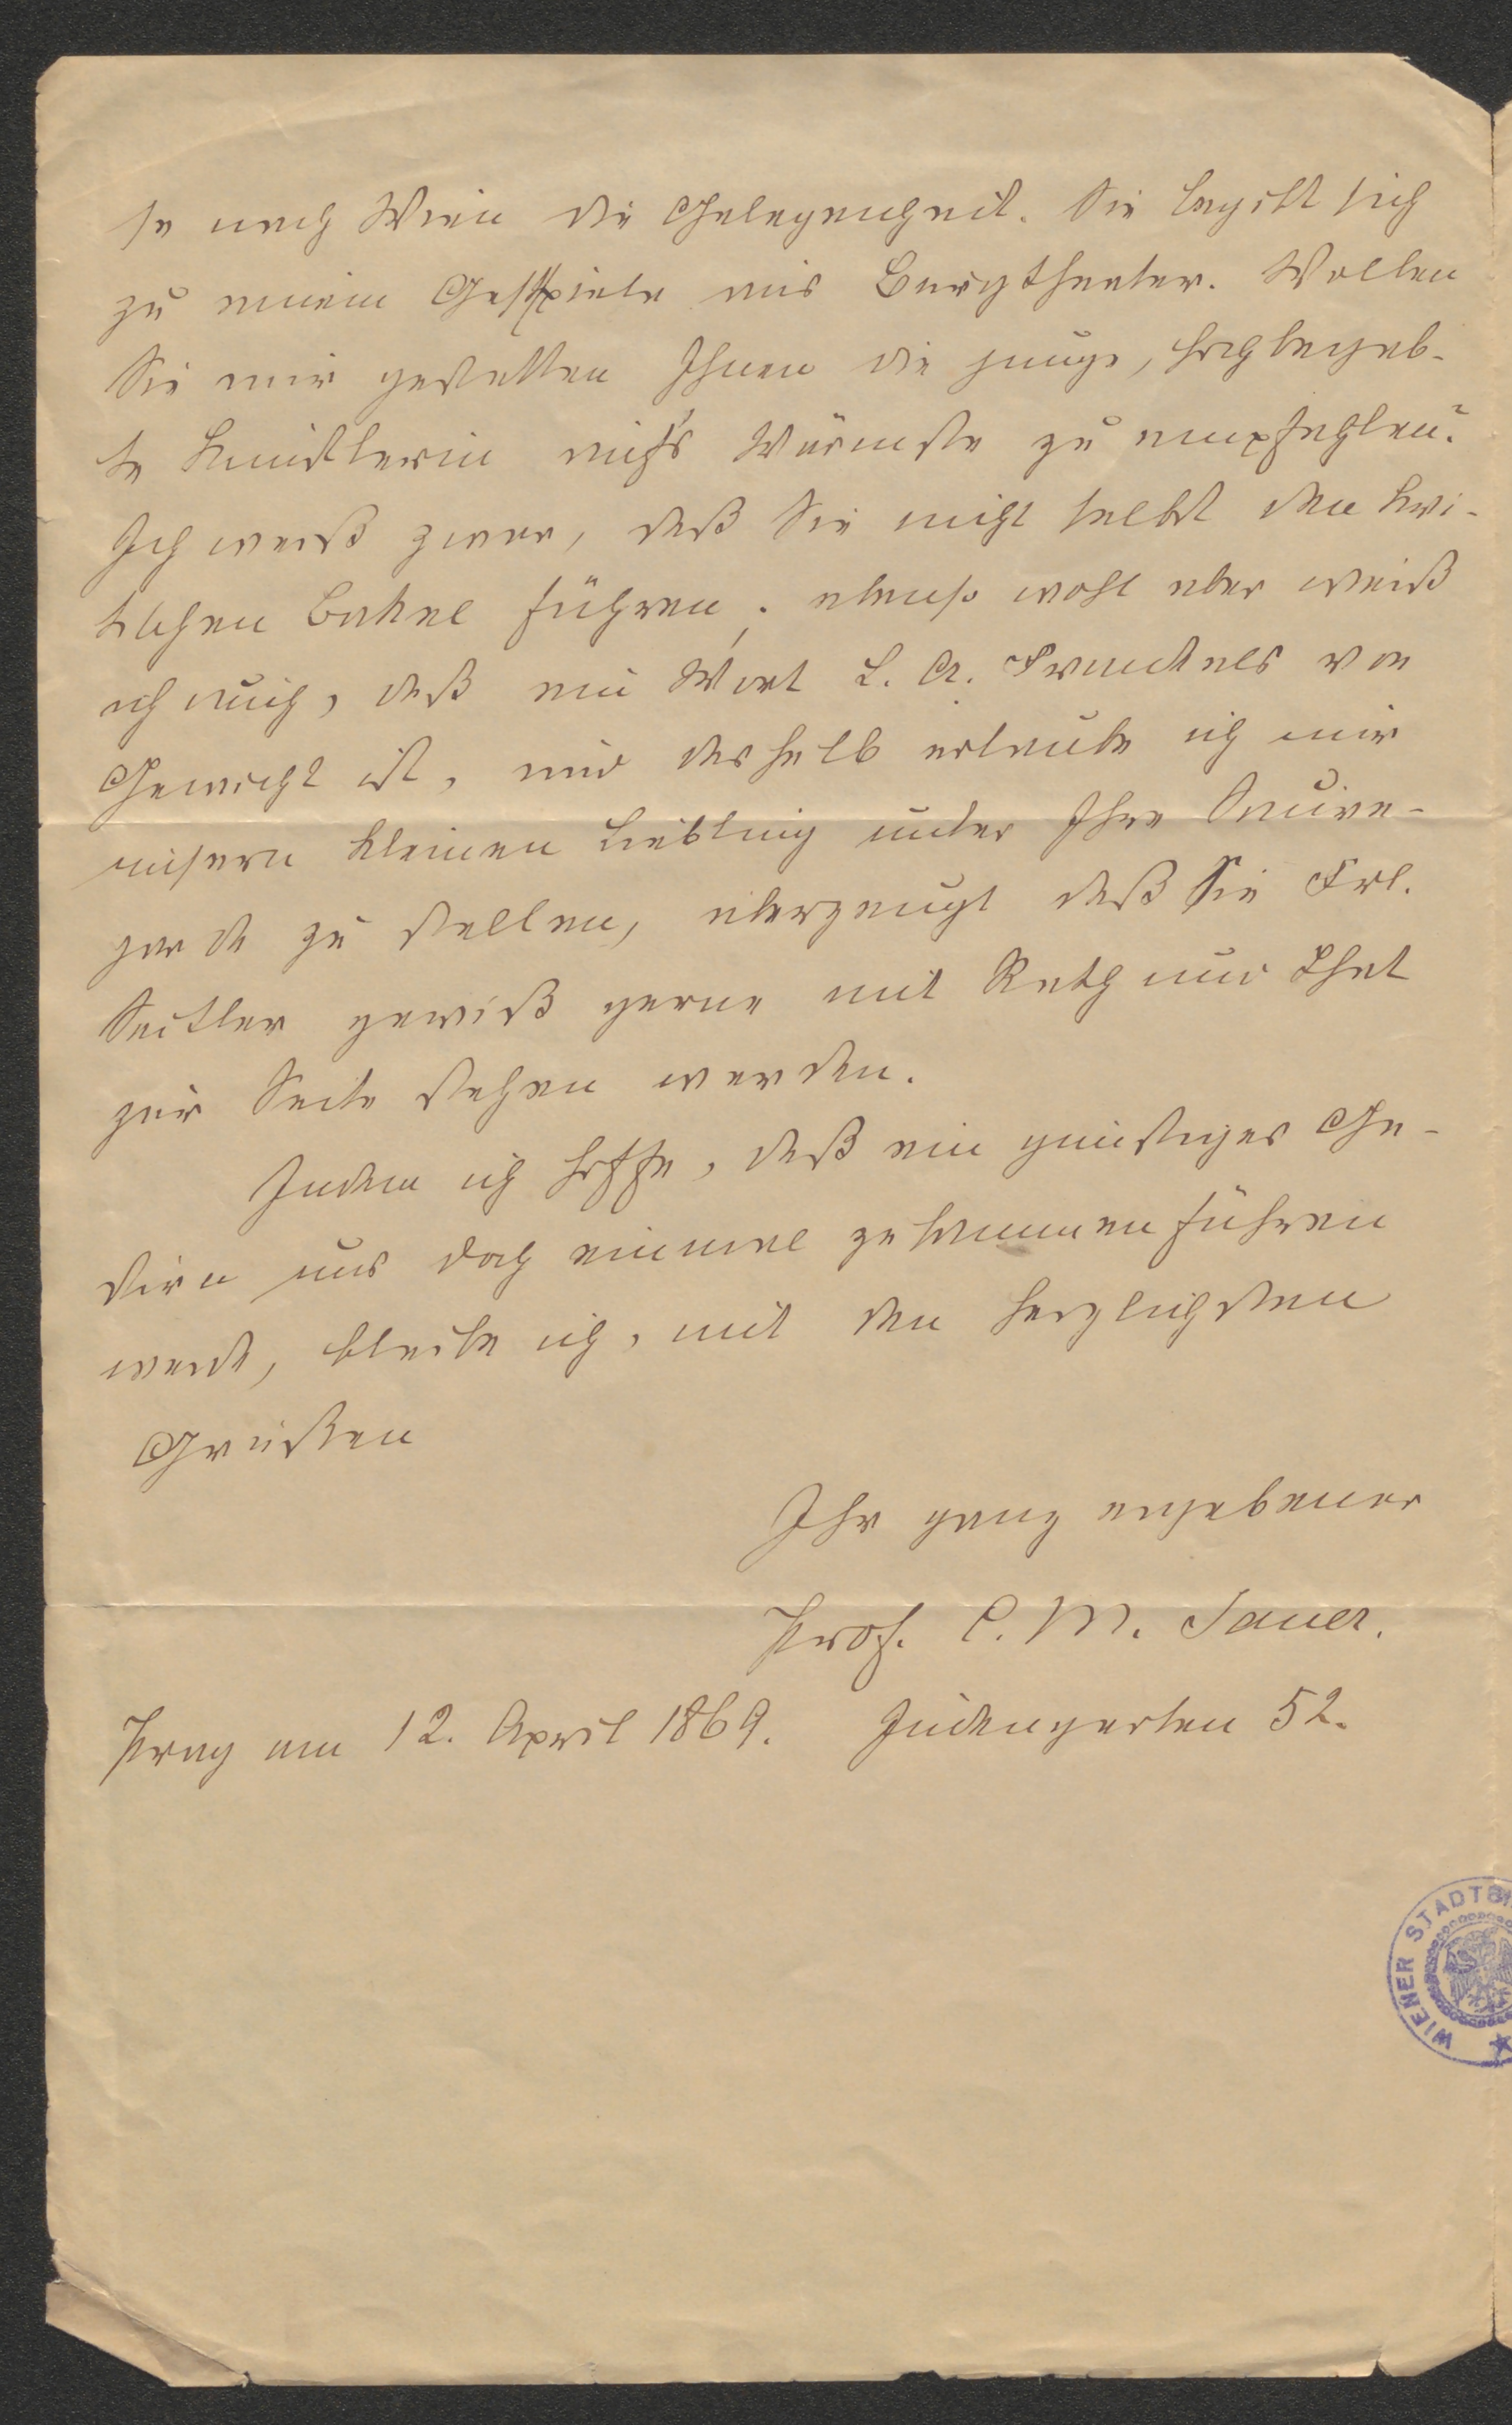 se nach Wien die Gelegenheit. Sie begibt sich
zu einem Gastspiele ans Burgtheater. Wollen
Sie mir gestatten Ihnen die junge, hochbegab-
te Künstlerin auf's Wärmste zu empfehlen?
Ich weiß zwar, daß Sie nicht selbst den kri-
tischen Bakel führen; ebenso wohl aber weiß
ich auch, daß ein Wort L. A. Frankls von
Gewicht ist, und deshalb erlaube ich mir
unsern kleinen Liebling unter Ihre Sauve-
garde zu stellen, überzeugt daß Sie Frl.
gewiß gerne mit Rath und That
zur Seite stehen werden.
Indem ich hoffe, daß ein günstiges Ge-
stirn uns doch einmal zusammenführen
werde, bleibe ich, mit den herzlichsten
Grüßen
Ihr ganz ergebener
Prof. C. M. Sauer.
Prag am 12. April 1869. Judengarten 52.
WIENER STADTBI